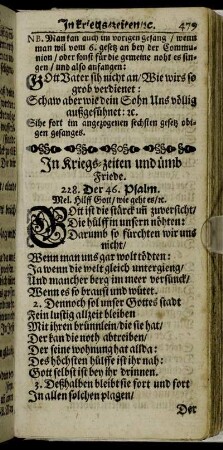 In kriegs-zeiten/ꝛc. 479
NB. Man kan auch im vorigen gesang / wenn
man wil vom 6. gesetz an bey der Commu-
nion / oder sonst für die gemeine noht es sin-
gen / und also anfangen:
GOtt Vater sih nicht an/ Wie wirs so
grob verdienet:
Schaw aber wie dein Sohn Uns völlig
außgesühnet: ꝛc.
Sihe fort im angezogenen sechsten gesetz obi-
gen gesanges.
In Kriegs-zeiten und ümb
Friede.
228. Der 46. Psalm.
Mel. Hilff Gott/ wie geht es/ꝛc.
GOtt ist die stärck uñ zuversicht/
Die hülff in unsern nöhten:
Darumb so fürchten wir uns
nicht/
Wenn man uns gar wolt tödten:
Ja wenn die welt gleich untergieng/
Und mancher berg im meer versünck/
Wenn es so braust und wütet.
2. Dennoch sol unser Gottes stadt
Fein lustig allzeit bleiben
Mit ihren brünnlein/ die sie hat/
Der kan die noth abtreiben/
Der seine wohnung hat allda:
Des höchsten hülffe ist ihr nah:
Gott selbst ist bey ihr drinnen.
3. Deßhalben bleibt sie fort und fort
In allen solchen plagen/
Der